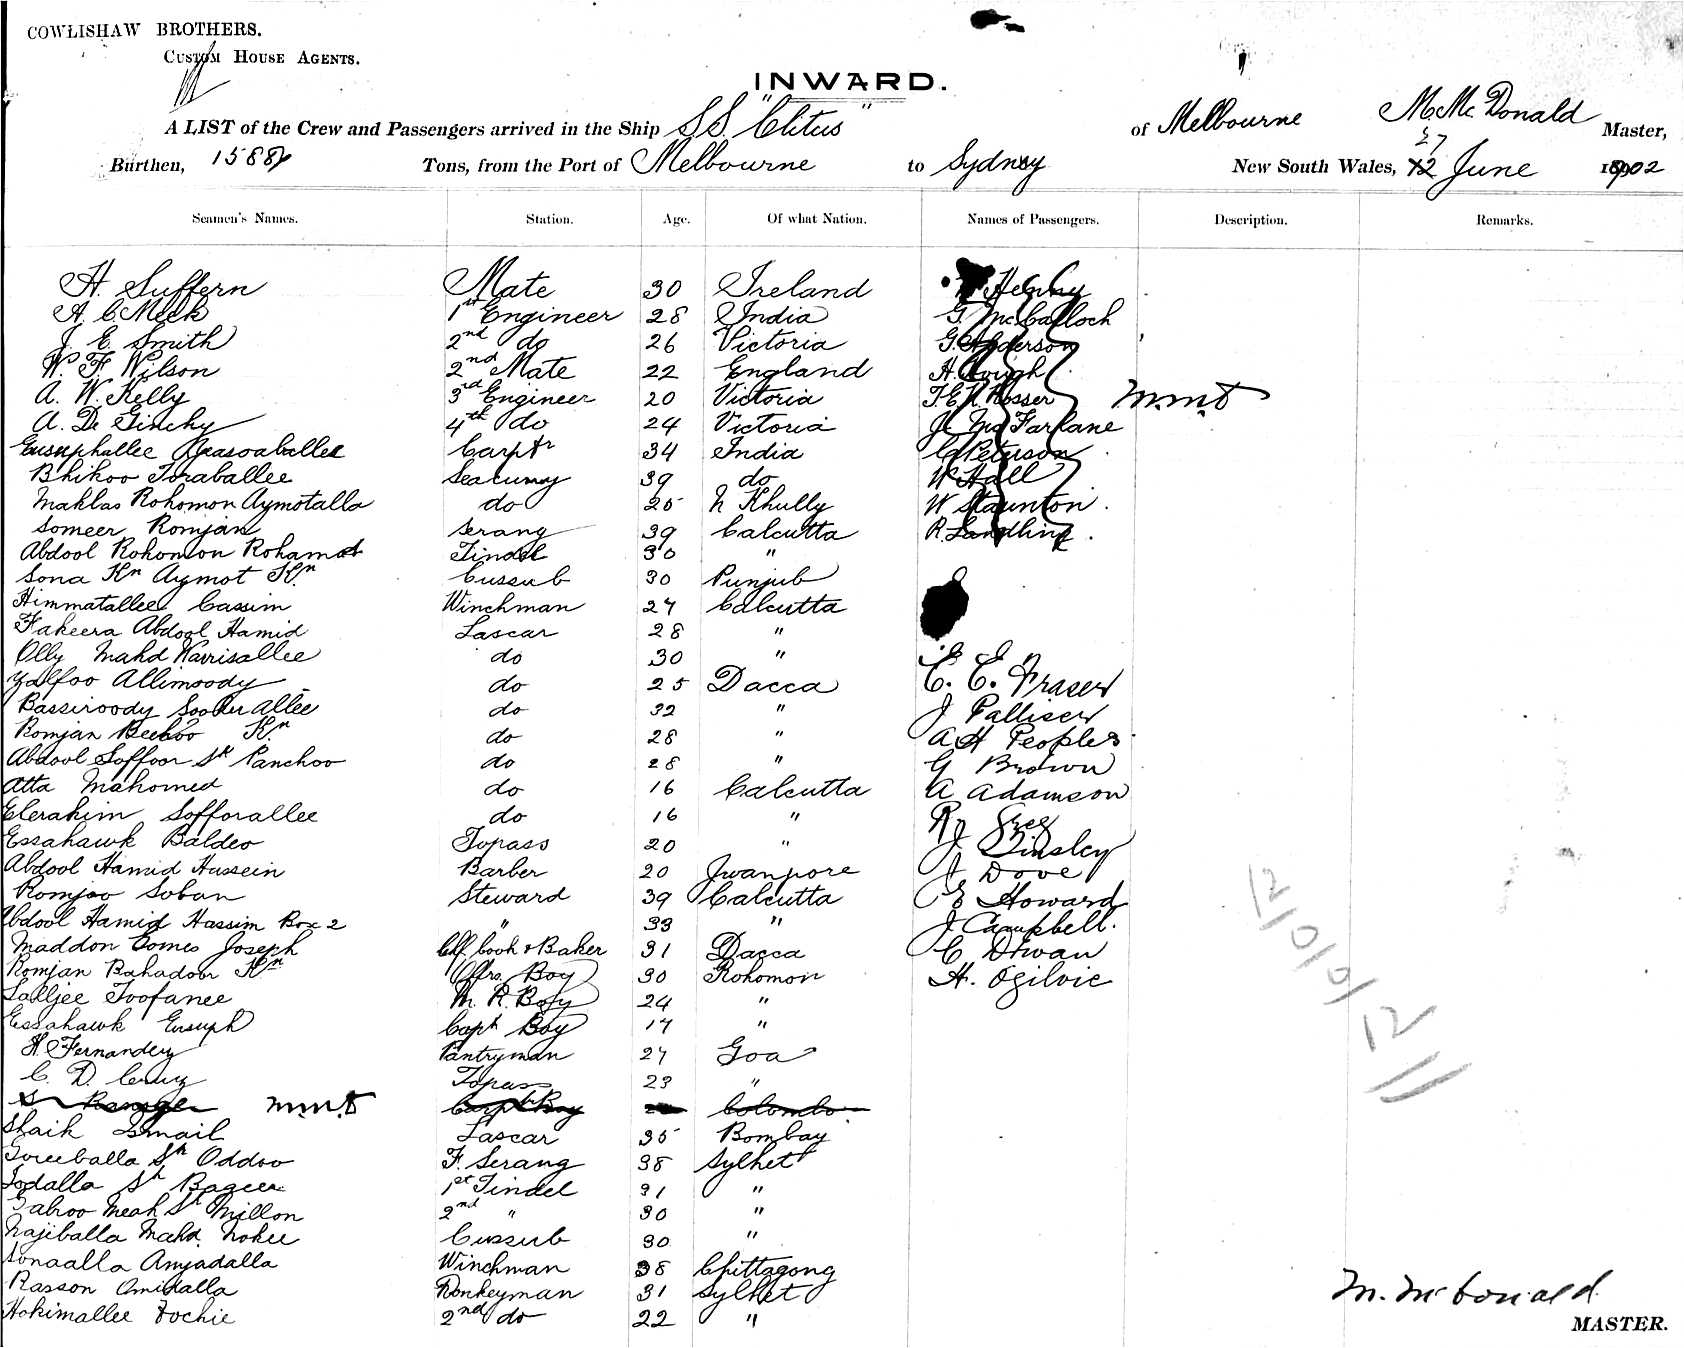 COWLISHAW BROTHERS.
CUSTOM HOUSE AGENTS.
INWARD.
A LIST of the Crew and Passengers arrived in the Ship S.S. "Clitus" of Melbourne M. McDonald Master,
Burthen, 1588 Tons, from the Port of Melbourne to Sydney New South Wales, 27 June 1902
Seamen's Names. Station. Age. Of what Nation. Names of Passengers. Description. Remarks.
H. Suffern Mate 30 Ireland Henry
A. C. Meek 1st Engineer 28 India G. McCalloch
J. E. Smith 2nd do 26 Victoria G. Anderson
W. F. Wilson 2nd Mate 22 England H. Gough
A. W. Kelly 3rd Engineer 20 Victoria T. E. Rosser M.McD
A. De Ginchy 4th do 24 Victoria J. McFarlane
Eusuphallee 34 India C. Peterson
Bhikoo Toraballee Seacunny 39 do W Hall
Maklas Rohomon Aymotalla do 25 N Khully W Staunton.
Someer Romjan Serang 39 Calcutta R. Sandling.
Abdool Rohomon Rohamat Tindel 30 "
Sona Kn Aymot Kn Cussub 30 Punjub
Himmatallee Cassim Winchman 27 Calcutta
Fakeera Abdool Hamid Lascar 28 "
Olly Mahd Warrisallee do 30 "
Yalfoo Allimoody do 25 Dacca C. E. Fraser
Bassiroody Sooku Allee do 32 " J Palliser
Romjan Beckoo Kn do 28 " A H Peoples
Abdool Goffoor Sk Panchoo do 28 " G Brown
Atta Mahomed do 16 Calcutta A Adamson
Elerahim Sofforallee do 16 "
Essahawk Baldeo Topass 20 " J Tinsley
Abdool Hamid Hussein Barber 20 Jwanpore Dove
Romjoo Soban Steward 39 Calcutta E Howard
Abdool Hamid Hassim Box 2 " 33 " J Campbell.
Maddon Gomes Joseph Chf. Cook & Baker 31 Dacca C Dewan
Romjan Bahadoor Kn Offrs. Boy 30 Rohomon H. Ogilvie
Lalljee Toofanee M. R. Boy 24 "
Essahawk Eusuph Capt Boy 17 "
H. Fernandez Pantryman 27 Goa
C. D. Cruz Topass 23 "
M.McD Capt Boy Colombo
Shaik Ismail Lascar 35 Bombay
Toreeballa Sk Oddoo F. Serang 38 Sylhet
Sodalla Sk Bageer 1st Tindel 31 "
Taboo Meah Sk Millon 2nd " 30 "
Najiballa Mahd. Nokee Cussub 30 "
Sonaalla Amjadalla Winchman 38 Chittagong
Rasson Omidalla Donkeyman 31 Sylhet
Hokimallee Tochie 2nd do 22 "
12/0/0/12
M. McDonald
MASTER.